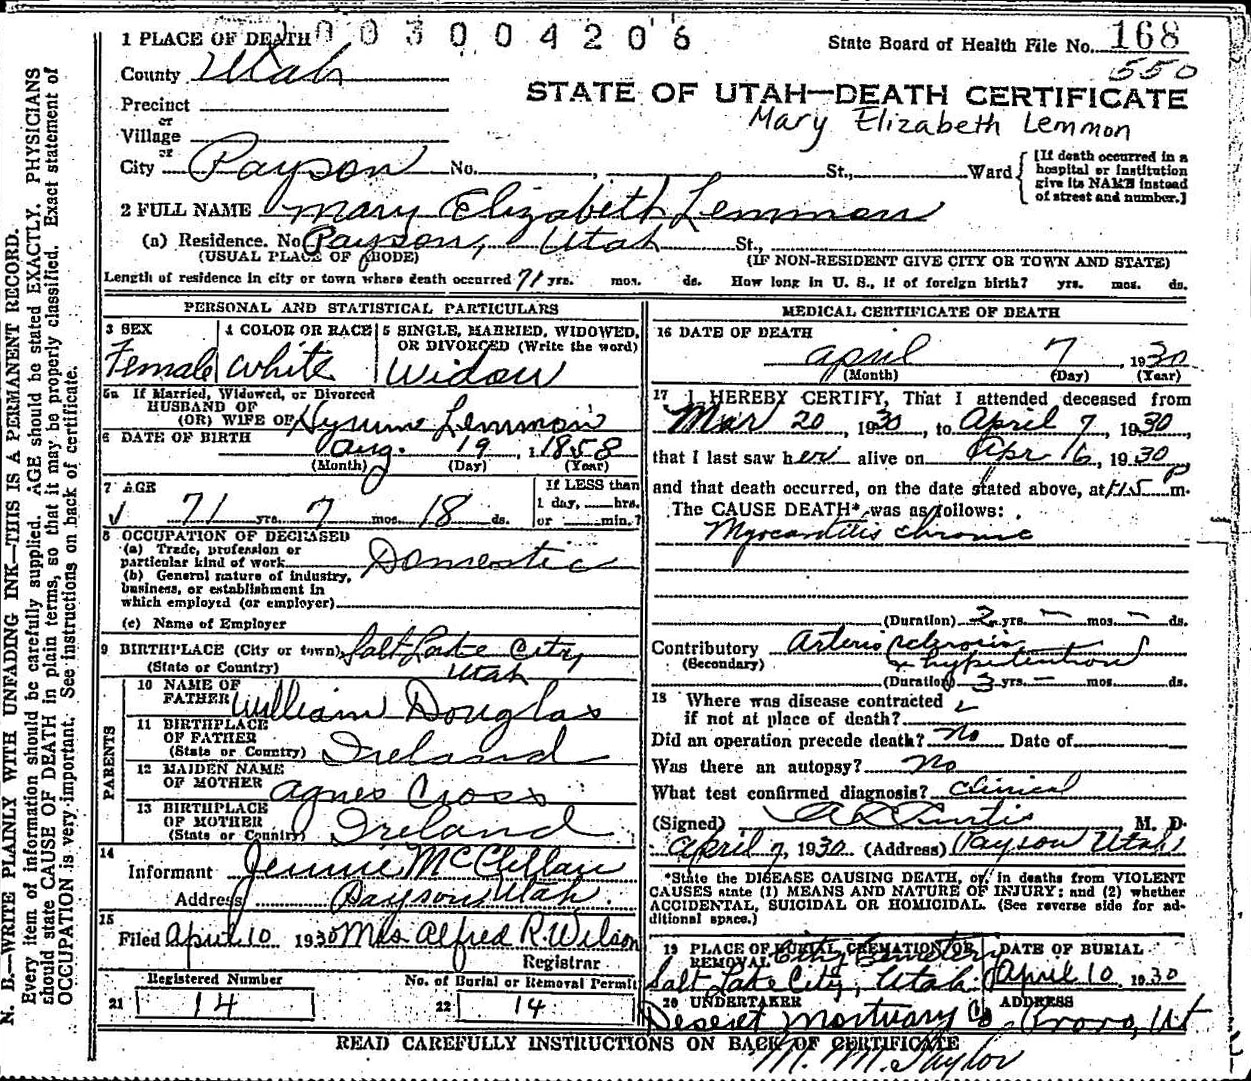 1 PLACE OF DEATH 1 0 0 3 0 0 4 2 0 6
State Board of Health File No. 168
550
County Utah
STATE OF UTAH—DEATH CERTIFICATE
Mary Elizabeth Lemmon
Precinct
or
Village
or
City Payson No. , St., Ward
[If death occurred in a hospital or institution give its NAME instead of street and number.]
2 FULL NAME Mary Elizabeth Lemmon
(a) Residence. No. Payson, Utah St.,
(USUAL PLACE OF ABODE) (IF NON-RESIDENT GIVE CITY OR TOWN AND STATE)
Length of residence in city or town where death occurred 71 yrs. mos. ds. How long in U. S., if of foreign birth? yrs. mos. ds.
PERSONAL AND STATISTICAL PARTICULARS
3 SEX Female
4 COLOR OR RACE White
5 SINGLE, MARRIED, WIDOWED, OR DIVORCED (Write the word) Widow
5a If Married, Widowed, or Divorced
HUSBAND OF
(OR) WIFE OF Hyrum Lemmon
6 DATE OF BIRTH Aug. 19, 1858
(Month) (Day) (Year)
7 AGE
71 yrs. 7 mos. 18 ds.
If LESS than
1 day, hrs.
or min.?
8 OCCUPATION OF DECEASED
(a) Trade, profession or
particular kind of work Domestic
(b) General nature of industry,
business, or establishment in
which employed (or employer)
(c) Name of Employer
9 BIRTHPLACE (City or town) Salt Lake City,
(State or Country) Utah
PARENTS
10 NAME OF
FATHER William Douglas
11 BIRTHPLACE
OF FATHER
(State or Country) Ireland
12 MAIDEN NAME
OF MOTHER Agnes Cross
13 BIRTHPLACE
OF MOTHER
(State or Country) Ireland
14
Informant Jennie McClellan
Address Payson Utah.
15
Filed April 10 1930 Mrs Alfred R. Wilson
Registrar
Registered Number
21 14
No. of Burial or Removal Permit
22 14
MEDICAL CERTIFICATE OF DEATH
16 DATE OF DEATH
April 7, 1930
(Month) (Day) (Year)
17 I HEREBY CERTIFY, That I attended deceased from
Mar 20, 1930, to April 7, 1930,
that I last saw her alive on Apr 6, 1930
and that death occurred, on the date stated above, at P m.
The CAUSE DEATH* was as follows:
Myocarditis chronic
(Duration) 2 yrs. — mos. — ds.
Contributory Arterio sclerosis
(Secondary) & hypertension
(Duration) 3 yrs. — mos. ds.
18 Where was disease contracted
if not at place of death?
Did an operation precede death? No Date of
Was there an autopsy? No
What test confirmed diagnosis? Clinical
(Signed) A L Curtis M. D.
April 7, 1930 (Address) Payson Utah
*State the DISEASE CAUSING DEATH, or, in deaths from VIOLENT
CAUSES state (1) MEANS AND NATURE OF INJURY; and (2) whether
ACCIDENTAL, SUICIDAL OR HOMICIDAL. (See reverse side for ad-
ditional space.)
19 PLACE OF BURIAL, CREMATION OR
REMOVAL City Cemetery
Salt Lake City, Utah.
DATE OF BURIAL
April 10 1930
20 UNDERTAKER
Deseret Mortuary Co
ADDRESS
Provo, Ut
READ CAREFULLY INSTRUCTIONS ON BACK OF CERTIFICATE
M. M. Taylor
N. B.—WRITE PLAINLY WITH UNFADING INK—THIS IS A PERMANENT RECORD.
Every item of information should be carefully supplied. AGE should be stated EXACTLY. PHYSICIANS
should state CAUSE OF DEATH in plain terms, so that it may be properly classified. Exact statement of
OCCUPATION is very important. See instructions on back of certificate.